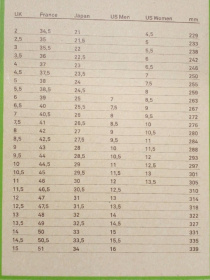 UK France Japan US Men US Women mm
2 34,5 21 4,5 229
2,5 35 21,5 5 233
3 35,5 22 5,5 238
3,5 36 22,5 6 242
4 37 23 6,5 246
4,5 37,5 23,5 7 250
5 38 24 7,5 255
5,5 38,5 24,5 8 259
6 39 25 7 8,5 263
6,5 40 25,5 7,5 9 267
7 40,5 26 8 9,5
7,5 41 26,5 8,5 10 276
8 42 27 9 10,5 280
8,5 42,5 27,5 9,5 11 284
9 43 28 10 11,5 288
9,5 44 28,5 10,5 12 293
10 44,5 29 11 12,5 297
10,5 45 29,5 11,5 13 301
11 46 30 12 13,5 305
11,5 46,5 30,5 12,5 310
12 47 31 13 314
12,5 47,5 31,5 13,5 318
13 48 32 14 322
13,5 49 32,5 14,5 327
14 50 33 15 331
14,5 50,5 33,5 15,5 335
15 51 34 16 339